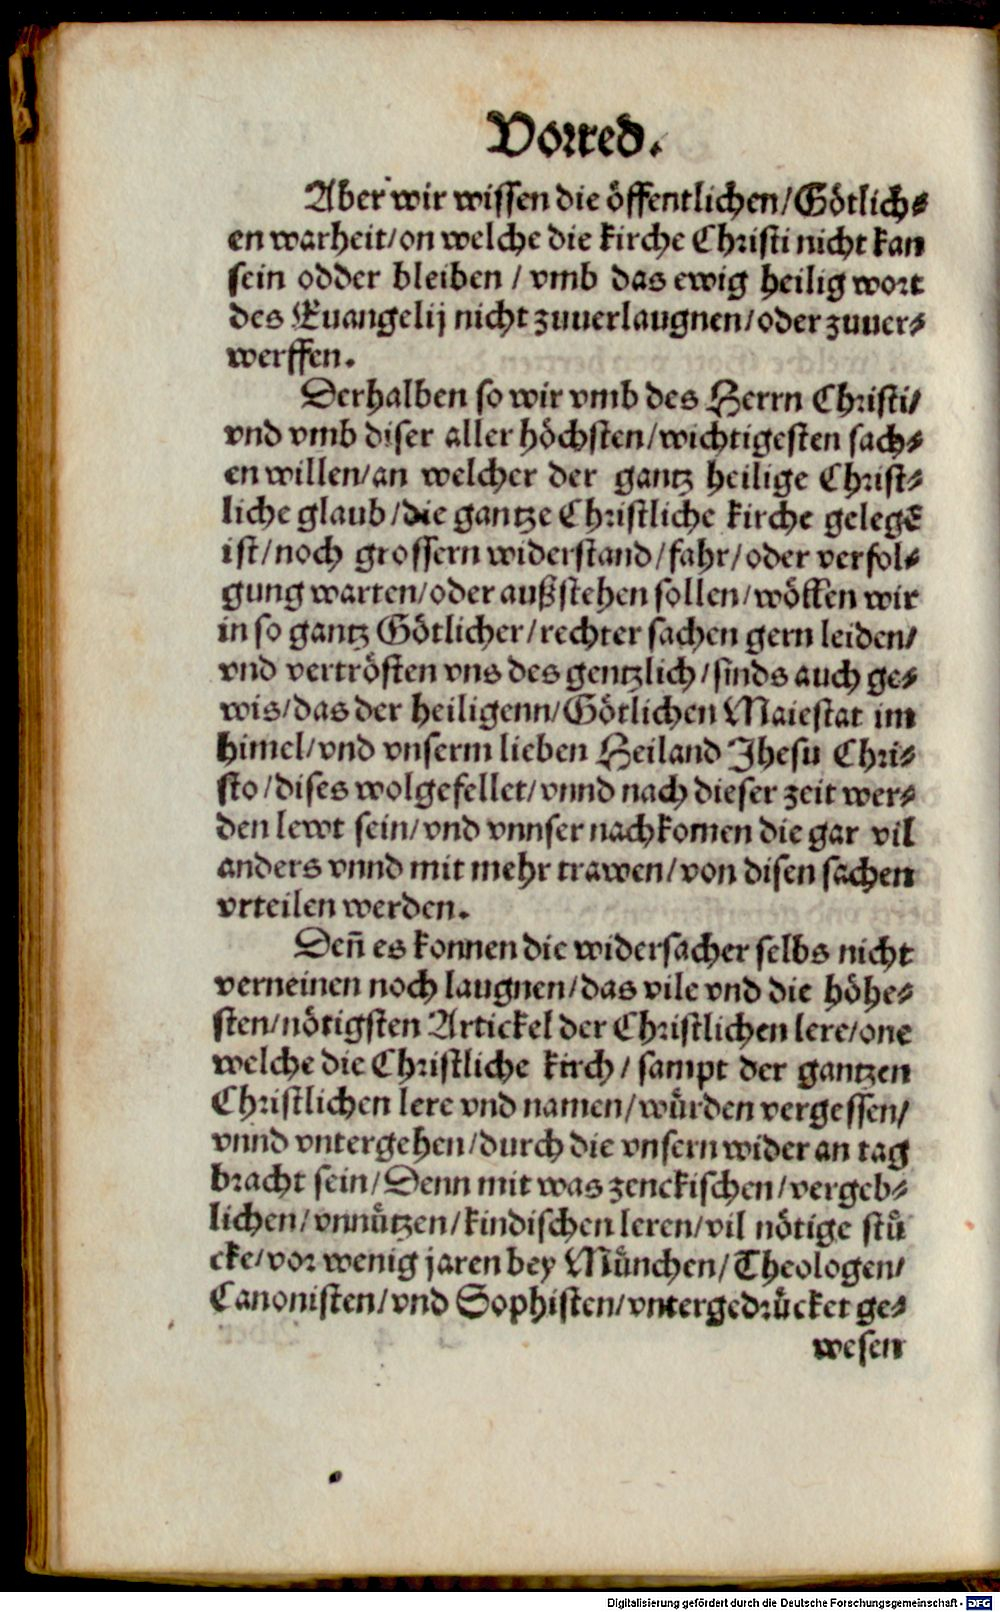 Vorred.
Aber wir wissen die öffentlichen/Götlich-
en warheit/on welche die kirche Christi nicht kan
sein odder bleiben / vmb das ewig heilig wort
des Euangelij nicht zuuerlaugnen/oder zuuer-
werffen.
Derhalben so wir vmb des Herrn Christi/
vnd vmb diser aller höchsten/wichtigesten sach-
en willen/an welcher der gantz heilige Christ-
liche glaub/die gantze Christliche kirche gelegē
ist/noch grossern widerstand/fahr/oder verfol-
gung warten/oder außstehen sollen/wöllen wir
in so gantz Götlicher/rechter sachen gern leiden/
vnd vertrösten vns des gentzlich/sinds auch ge-
wis/das der heiligenn/Götlichen Maiestat im
himel/vnd vnserm lieben Heiland Jhesu Chri-
sto/dises wolgefellet/vnnd nach dieser zeit wer-
den lewt sein/vnd vnnser nachkomen die gar vil
anders vnnd mit mehr trawen/von disen sachen
vrteilen werden.
Deñ es konnen die widersacher selbs nicht
verneinen noch laugnen/das vile vnd die höhe-
sten/nötigsten Artickel der Christlichen lere/one
welche die Christliche kirch / sampt der gantzen
Christlichen lere vnd namen/wuͤrden vergessen/
vnnd vntergehen/durch die vnsern wider an tag
bracht sein/Denn mit was zenckischen/vergeb-
lichen/vnnuͤtzen/kindischen leren/vil nötige stuͤ
cke/vor wenig jaren bey Muͤnchen/Theologen/
Canonisten/vnd Sophisten/vntergedruͤcket ge-
wesen
Digitalisierung gefördert durch die Deutsche Forschungsgemeinschaft - DFG